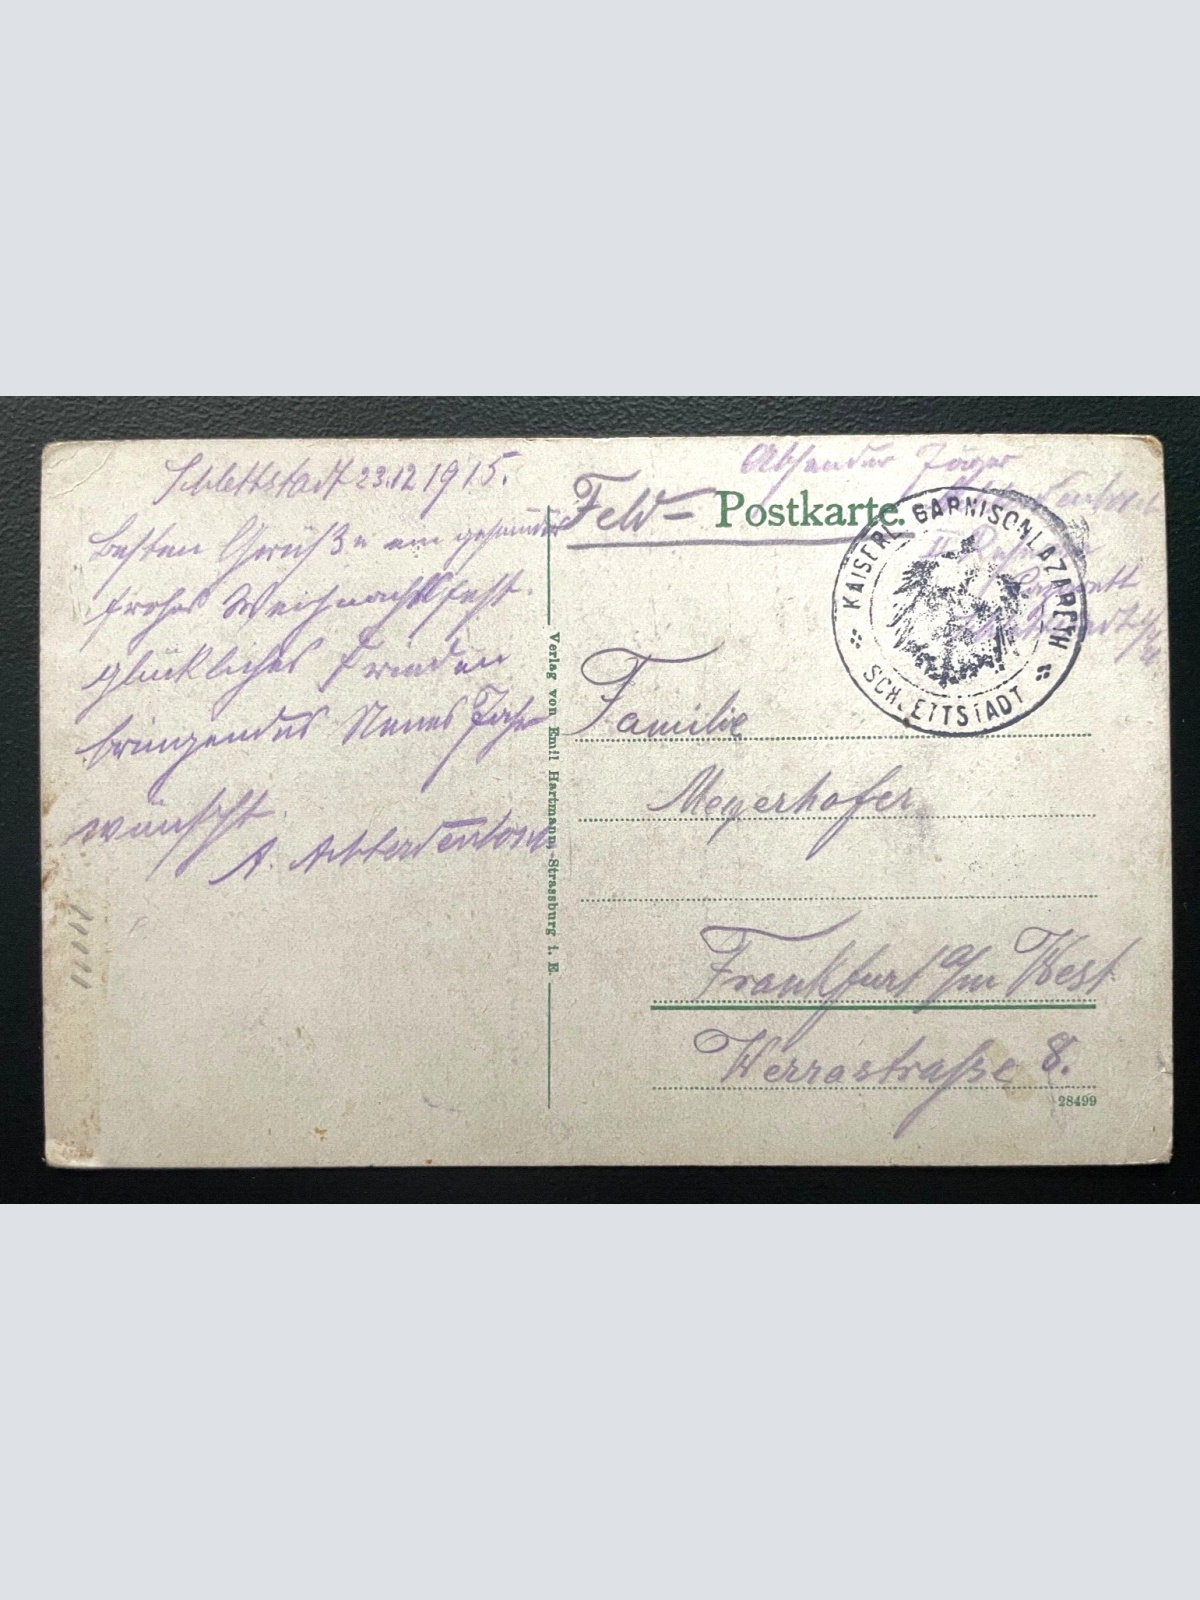 Schlettstadt 23.12.1915.
Besten Grüße ein gesundes
frohes Weihnachtsfest.
glückliches Frieden
bringendes Neues Jahr
wünscht
A.
Feld- Postkarte.
Absender Jäger
II
Lazarett
KAISERL. GARNISONLAZARETH
SCHLETTSTADT
Familie
Meyerhofer
Frankfurt a/m West
Werrastraße 8.
28499
Verlag von Emil Hartmann, Strassburg i. E.